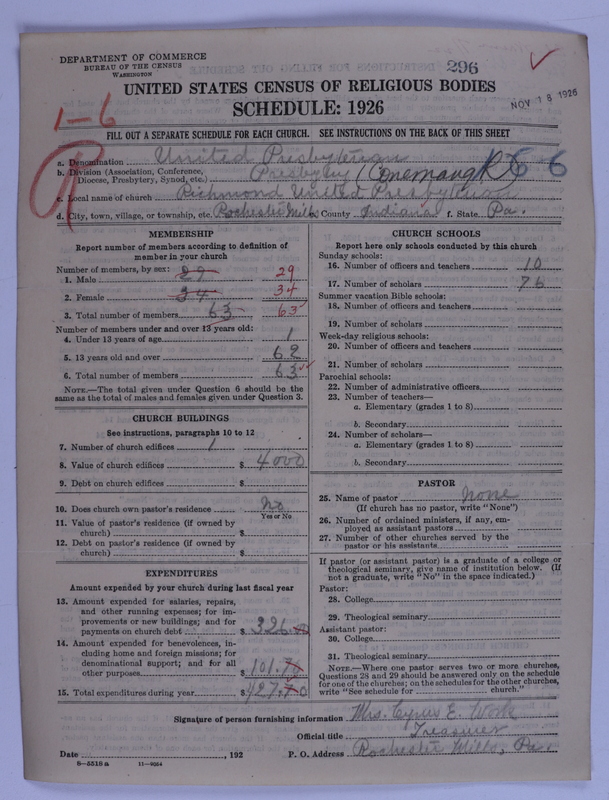 DEPARTMENT OF COMMERCE
BUREAU OF THE CENSUS
WASHINGTON
296
UNITED STATES CENSUS OF RELIGIOUS BODIES
SCHEDULE: 1926
NOV 18 1926
1-6
FILL OUT A SEPARATE SCHEDULE FOR EACH CHURCH. SEE INSTRUCTIONS ON THE BACK OF THIS SHEET
a. Denomination United Presbyterian
b. Division (Association, Conference, Diocese, Presbytery, Synod, etc.) Presbytery (Conemaugh) R 66
c. Local name of church Richmond United Presbyterian
d. City, town, village, or township, etc. Rochester Mills County Indiana f. State Pa.
MEMBERSHIP
Report number of members according to definition of
member in your church
Number of members, by sex:
1. Male 29 29
2. Female 34 34
3. Total number of members 63 63
Number of members under and over 13 years old:
4. Under 13 years of age 1
5. 13 years old and over 62
6. Total number of members 63
NOTE.—The total given under Question 6 should be
same as the total of males and females given under Question 3.
CHURCH BUILDINGS
See instructions, paragraphs 10 to 12
7. Number of church edifices 1
8. Value of church edifices $ 4000
9. Debt on church edifices $
10. Does church own pastor's residence No
Yes or No
11. Value of pastor's residence (if owned by
church) $
12. Debt on pastor's residence (if owned by
church) $
EXPENDITURES
Amount expended by your church during last fiscal year
13. Amount expended for salaries, repairs,
and other running expenses; for im-
provements or new buildings; and for
payments on church debt $ 326.
14. Amount expended for benevolences, in-
cluding home and foreign missions; for
denominational support; and for all
other purposes $ 101.
15. Total expenditures during year $ 427.
CHURCH SCHOOLS
Report here only schools conducted by this church
Sunday schools:
16. Number of officers and teachers 10
17. Number of scholars 76
Summer vacation Bible schools:
18. Number of officers and teachers
19. Number of scholars
Week-day religious schools:
20. Number of officers and teachers
21. Number of scholars
Parochial schools:
22. Number of administrative officers
23. Number of teachers—
a. Elementary (grades 1 to 8)
b. Secondary
24. Number of scholars—
a. Elementary (grades 1 to 8)
b. Secondary
PASTOR
25. Name of pastor none
(If church has no pastor, write "None")
26. Number of ordained ministers, if any, em-
ployed as assistant pastors
27. Number of other churches served by the
pastor or his assistants
If pastor (or assistant pastor) is a graduate of a college or
theological seminary, give name of institution below. (If
not a graduate, write "No" in the space indicated.)
Pastor:
28. College
29. Theological seminary
Assistant pastor:
30. College
31. Theological seminary
NOTE.—Where one pastor serves two or more churches,
Questions 28 and 29 should be answered only on the schedule
for one of the churches; on the schedules for the other churches,
write "See schedule for church."
Signature of person furnishing information Mrs. Cyrus E. Work
Official title Treasurer
Date , 192 P. O. Address Rochester Mills, Pa.
8-5518a 11-9064